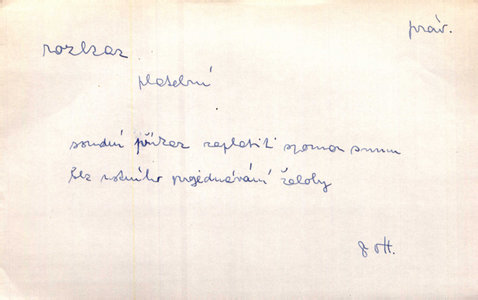 práv.
rozkaz
platební
soudní příkaz zaplatiti sumu
bez ústního projednávání žaloby